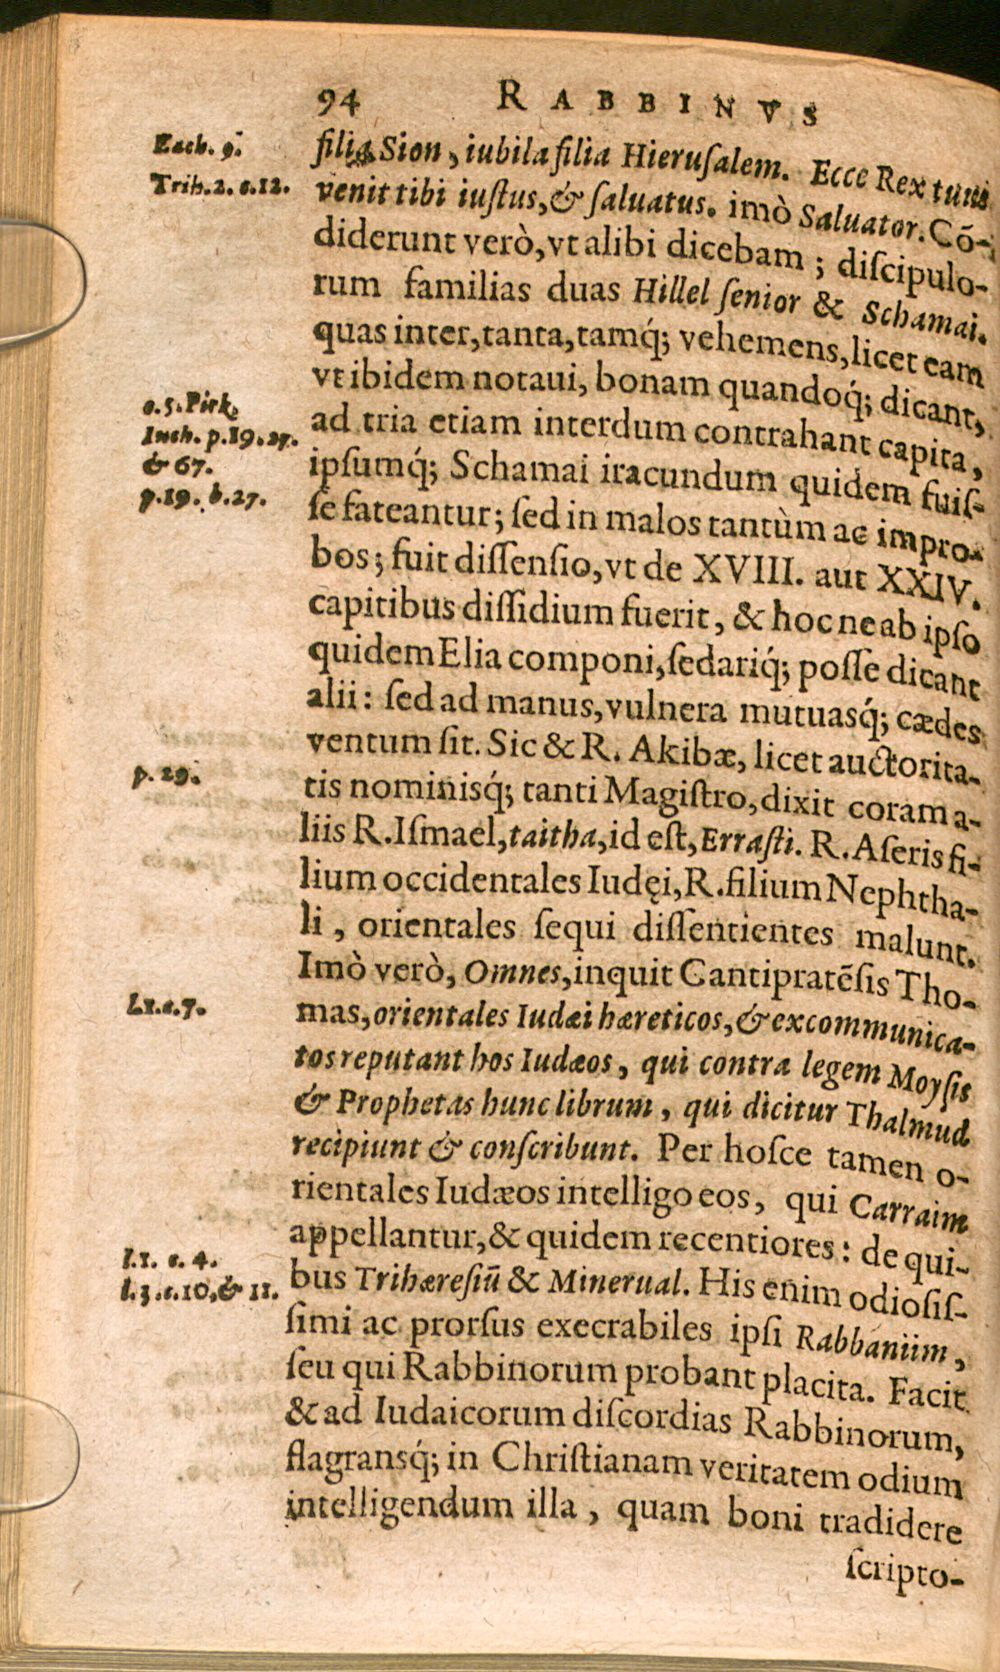 94 RABBINVS
Zach. 9.
Trih. 2. c. 12.
filia Sion, iubila filia Hieruſalem. Ecce Rex tuus
venit tibi iuſtus, & ſaluatus. imò Saluator. Cō-
diderunt verò, vt alibi dicebam; diſcipulo-
rum familias duas Hillel ſenior & Schamai.
quas inter, tanta, tamq́; vehemens, licet eam
vt ibidem notaui, bonam quandoq́; dicant,
c. 5. Pirk,
Iuch. p. 19. 27.
& 67.
p. 19. b. 27.
ad tria etiam interdum contrahant capita,
ipſumq́; Schamai iracundum quidem fuiſ-
ſe fateantur; ſed in malos tantùm ac impro-
bos; fuit diſſenſio, vt de XVIII. aut XXIV.
capitibus diſſidium fuerit, & hoc ne ab ipſo
quidem Elia componi, ſedariq́; poſſe dicant
alii: ſed ad manus, vulnera mutuasq́; cædes
ventum ſit. Sic & R. Akibæ, licet auctorita-
p. 29.
tis nominisq́; tanti Magiſtro, dixit coram a-
liis R. Iſmael, taitha, id eſt, Erraſti. R. Aſeris fi-
lium occidentales Iudęi, R. filium Nephtha-
li, orientales ſequi diſſentientes malunt.
Imò verò, Omnes, inquit Cantipratēſis Tho-
L. 1. c. 7.
mas, orientales Iudæi hæreticos, & excommunica-
tos reputant hos Iudæos, qui contra legem Moyſis
& Prophetas hunc librum, qui dicitur Thalmud
recipiunt & conſcribunt. Per hoſce tamen o-
rientales Iudæos intelligo eos, qui Carraim
appellantur, & quidem recentiores: de qui-
l. 1. c. 4.
l. 3. c. 10, & 11.
bus Trihæreſiū & Minerual. His enim odioſiſ-
ſimi ac prorſus execrabiles ipſi Rabbániim,
ſeu qui Rabbinorum probant placita. Facit
& ad Iudaicorum diſcordias Rabbinorum,
flagransq́; in Chriſtianam veritatem odium
intelligendum illa, quam boni tradidere
ſcripto-